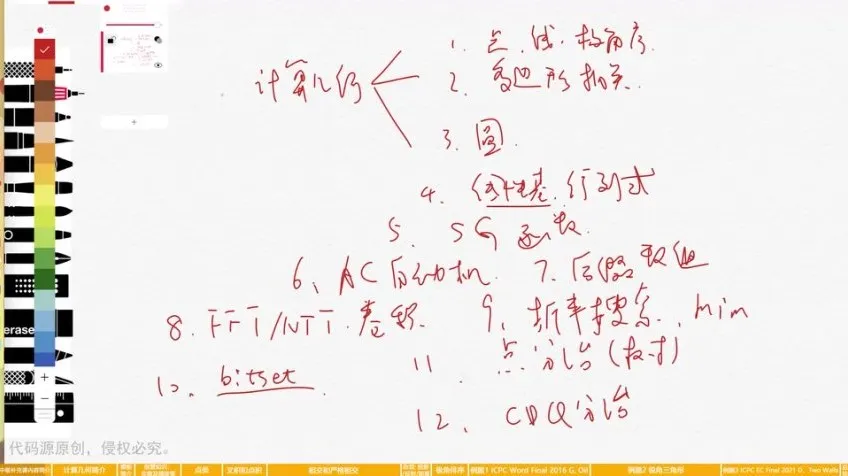 计算几何
1. 点、线、极角序
2. 多边形相关.
3. 圆.
4. 线性基. 行列式
5. SG函数.
6、AC自动机. 7. 后缀数组
8. FFT/NTT. 卷积. 9、折半搜索、mim
10、bitset 11. 点分治(树)
12、CDQ分治
erase
代码源原创，侵权必究。
计算几何简介 点积 叉积&点积 相交和严格相交 极角排序 例题1 ICPC Word Final 2016 G, Oil 例题2 锐角三角形 例题3 ICPC EC Final 2021 D, Two Walls